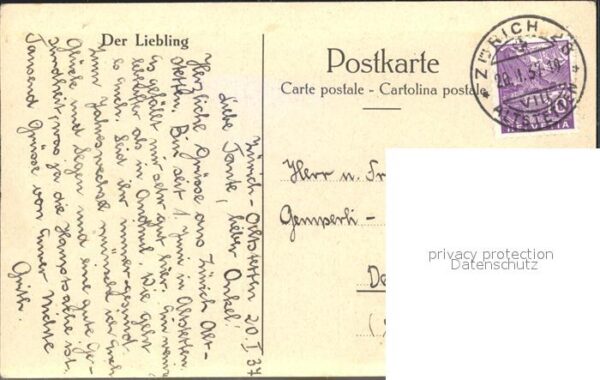 Der Liebling
Postkarte
Carte postale - Cartolina postale
ZÜRICH 28
20.I.37.
VIII
ALTSTETTEN
HELVETIA
10
Zürich-Altstetten 20. I. 37
Liebe Tante, lieber Onkel!
Herzliche Grüsse aus Zürich Alt-
stetten. Bin seit 1. Juni in Altstetten.
es gefällt mir sehr gut hier. Bin viel
lieber als in Andwil. Wie geht
es auch. Seid ihr immer gesund.
Zum Jahreswechsel wünsche ich Euch
Glück und Segen und eine gute Ge-
sundheit, was ja die Hauptsache ist.
Tausend Grüsse von Eurer Nichte
Herr u. Fr
Gemperli -
De
(
privacy protection
Datenschutz